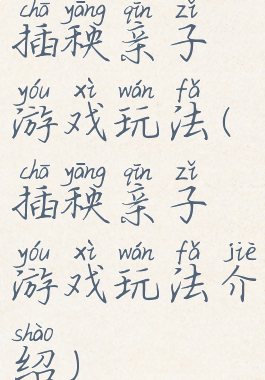 chā yāng qīn zǐ
插秧亲子
yóu xì wán fǎ
游戏玩法(
chā yāng qīn zǐ
插秧亲子
yóu xì wán fǎ jiè
游戏玩法介
shào
绍)